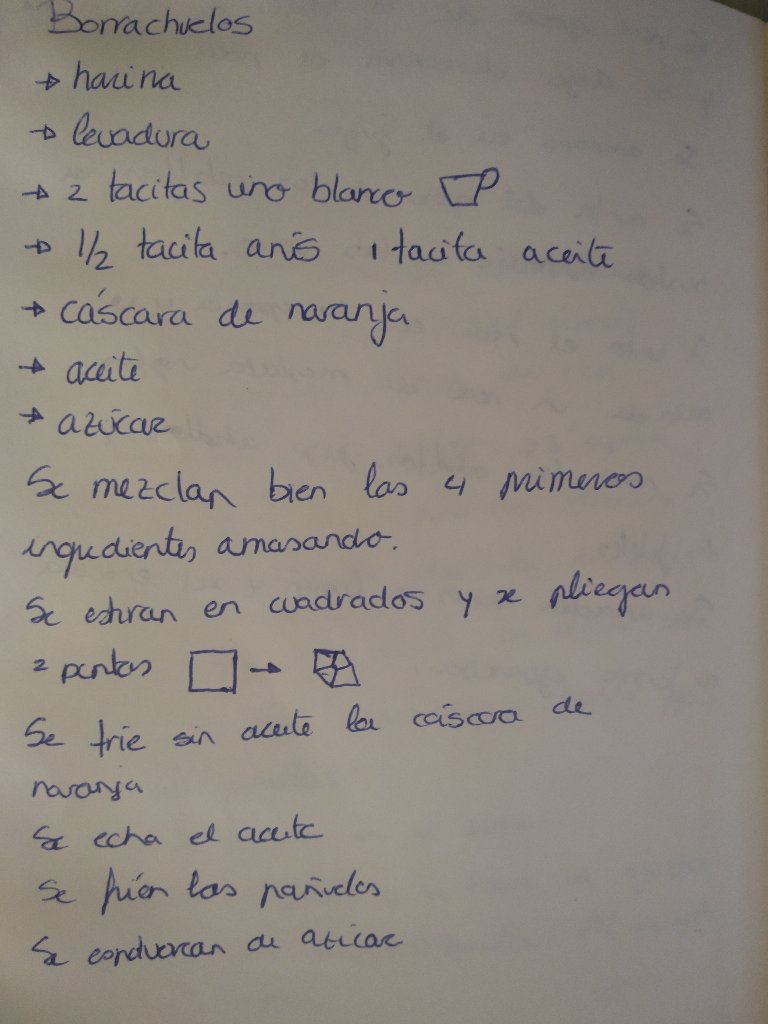 Borrachuelos
→ harina
→ levadura
→ 2 tacitas vino blanco
→ 1/2 tacita anís 1 tacita aceite
→ cáscara de naranja
→ aceite
→ azúcar
Se mezclan bien los 4 primeros
ingredientes amasando.
Se estiran en cuadrados y se pliegan
2 puntas →
Se fríe sin aceite la cáscara de
naranja
Se echa el aceite
Se fríen los pañuelos
Se de azúcar